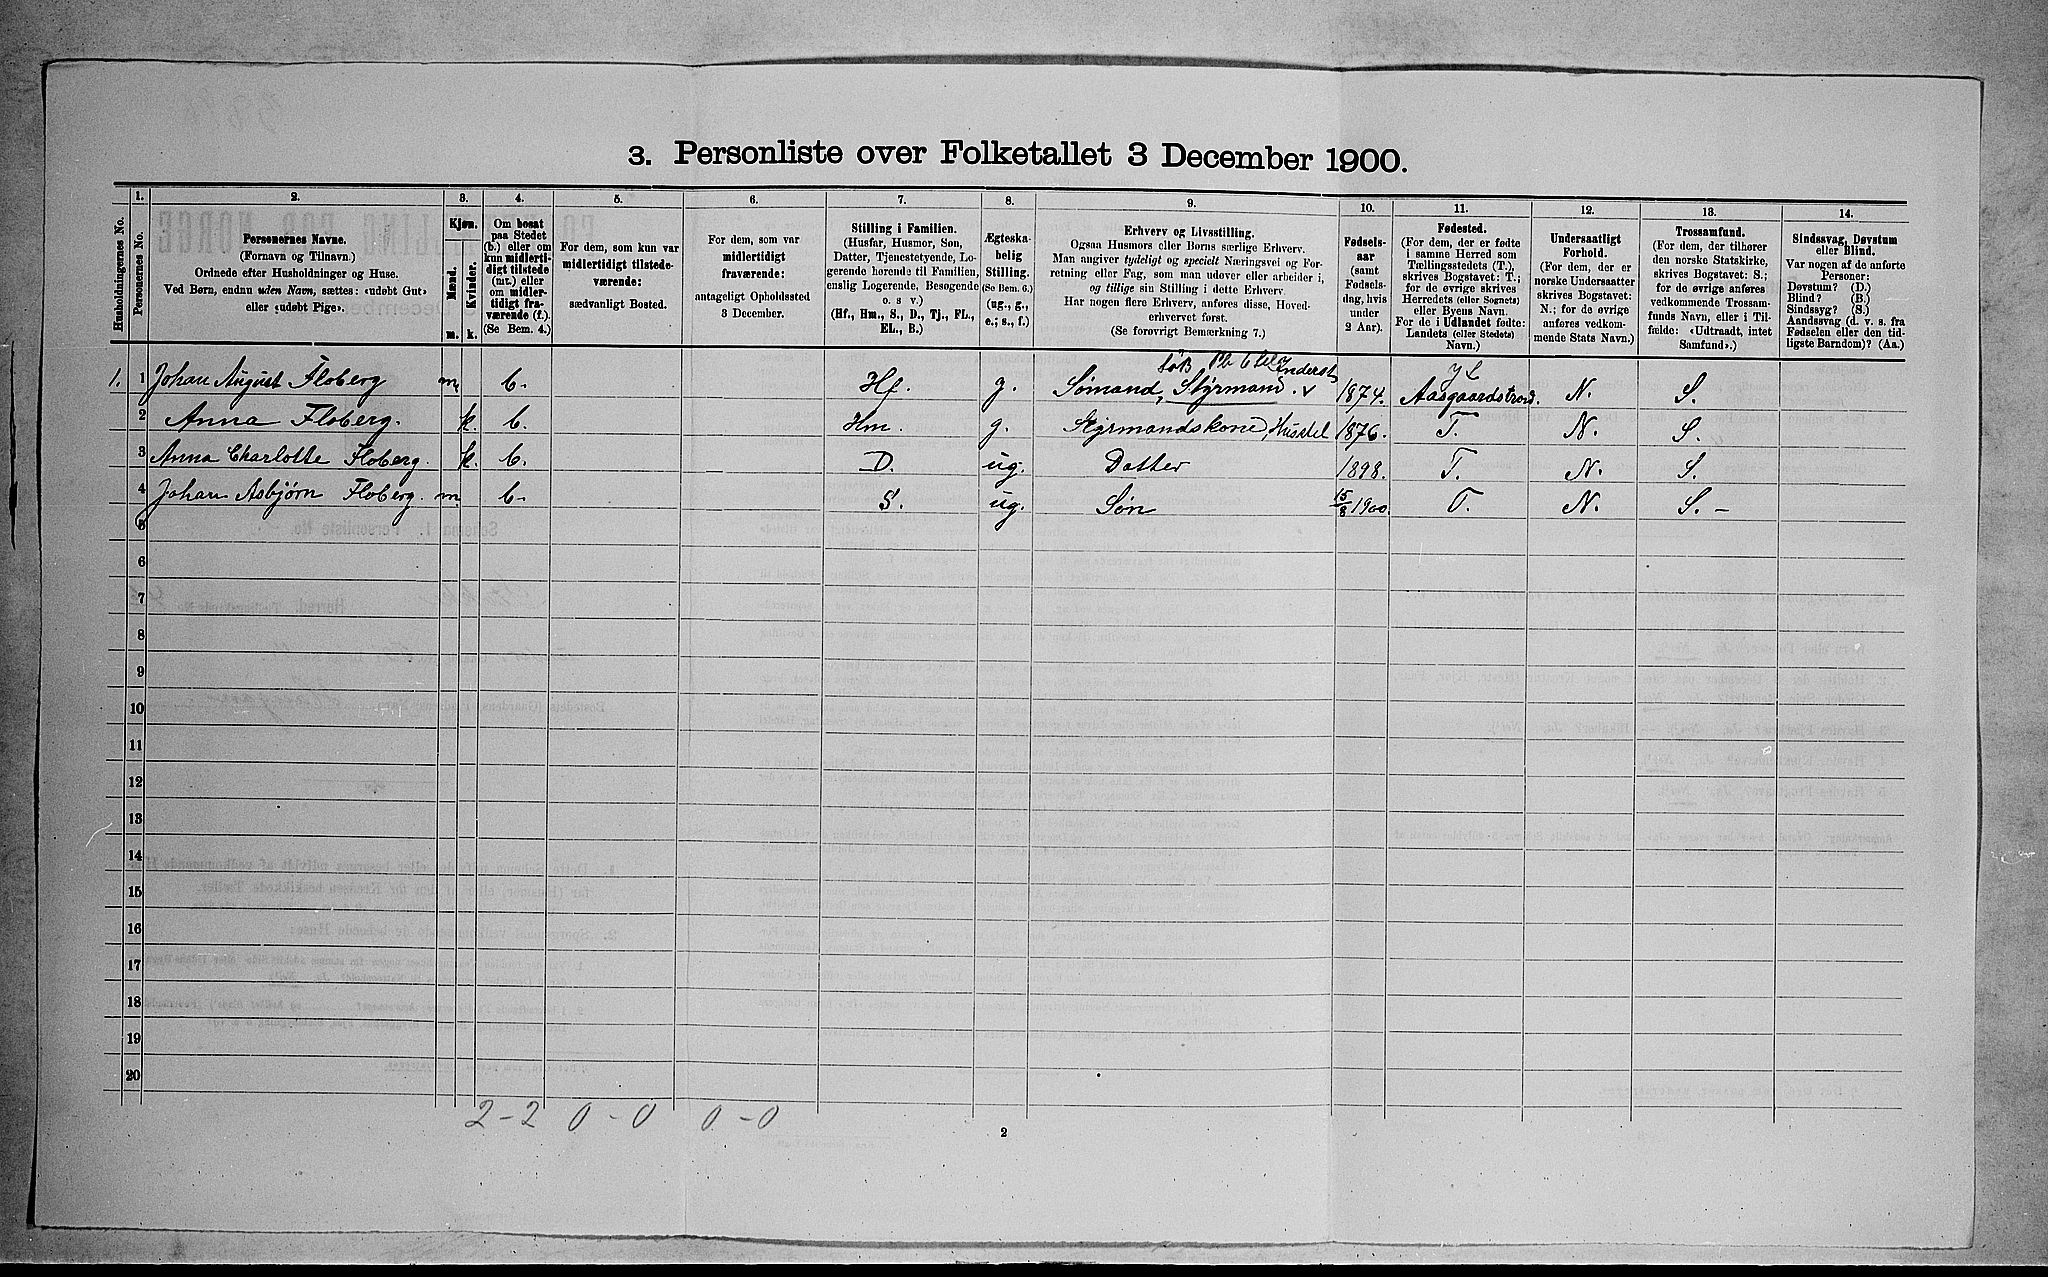 3. Personliste over Folketallet 3 December 1900.
1. 2. 3. 4. 5. 6. 7. 8. 9. 10. 11. 12. 13. 14.
Husholdningernes No.
Personernes No.
Personernes Navne.
(Fornavn og Tilnavn.)
Ordnede efter Husholdninger og Huse.
Ved Børn, endnu uden Navn, sættes: «udøbt Gut»
eller «udøbt Pige».
Kjøn.
Mænd.
Kvinder.
m. k.
Om bosat
paa Stedet
(b.) eller om
kun midlerti-
digt tilstede
(mt.) eller
om midler-
tidigt fra-
værende (f.).
(Se Bem. 4.)
For dem, som kun var
midlertidigt tilstede-
værende:
sædvanligt Bosted.
For dem, som var
midlertidigt
fraværende:
antageligt Opholdssted
3 December.
Stilling i Familien.
(Husfar, Husmor, Søn,
Datter, Tjenestetyende, Lo-
gerende hørende til Familien,
enslig Logerende, Besøgende
o. s v.)
(Hf., Hm., S., D., Tj., FL.,
EL., B.)
Ægteska-
belig
Stilling.
(Se Bem. 6.)
(ug., g.,
e.; s., f.)
Erhverv og Livsstilling.
Ogsaa Husmors eller Børns særlige Erhverv.
Man angiver tydeligt og specielt Næringsvei og For-
retning eller Fag, som man udøver eller arbeider i,
og tillige sin Stilling i dette Erhverv.
Har nogen flere Erhverv, anføres disse, Hoved-
erhvervet først.
(Se forøvrigt Bemærkning 7.)
Fødsels-
aar
(samt
Fødsels-
dag, hvis
under
2 Aar).
Fødested.
(For dem, der er fødte
i samme Herred som
Tællingsstedets (T.),
skrives Bogstavet: T.;
for de øvrige skrives
Herredets (eller Sognets)
eller Byens Navn.
For de i Udlandet fødte:
Landets (eller Stedets)
Navn.)
Undersaatligt
Forhold.
(For dem, der er
norske Undersaatter
skrives Bogstavet:
N.; for de øvrige
anføres vedkom-
mende Stats Navn.)
Trossamfund.
(For dem, der tilhører
den norske Statskirke,
skrives Bogstavet: S.;
for de øvrige anføres
vedkommende Trossam-
funds Navn, eller i Til-
fælde: «Udtraadt, intet
Samfund».)
Sindssvag, Døvstum
eller Blind.
Var nogen af de anførte
Personer:
Døvstum? (D.)
Blind? (B.)
Sindssyg? (S.)
Aandssvag (d. v. s. fra
Fødselen eller den tid-
ligste Barndom)? (Aa.)
1. 1 Johan August Floberg m b. Hf. g. Sømand, Styrmand. v 1874. Aasgaardstrand. N. S.
2 Anna Floberg. k. b. Hm. g. Styrmandskone, Husstel 1876. T. N. S.
3 Anna Charlotte Floberg. k. b. D. ug. Datter 1898. T. N. S.
4 Johan Asbjørn Floberg. m. b. S. ug. Søn 15/8 1900. T. N. S. –
5
6
7
8
9
10
11
12
13
14
15
16
17
18
19
20
2 – 2 0 – 0 0 – 0
2